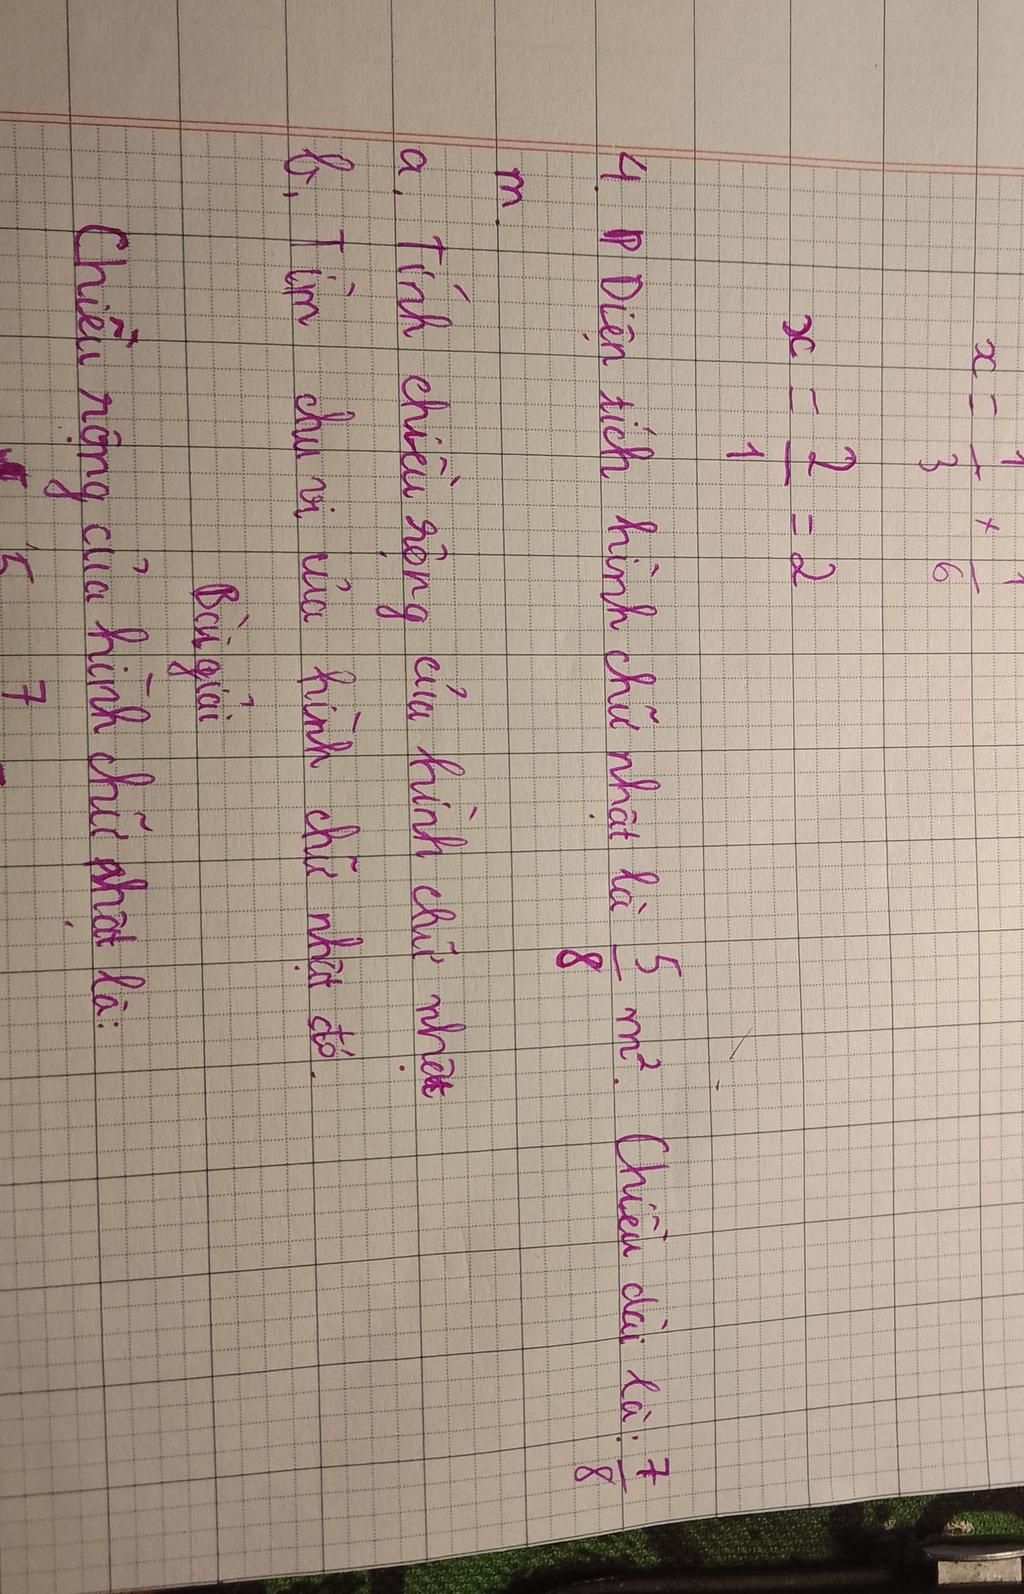 x = 1/3 × 1/6
x = 2/1 = 2
4. Diện tích hình chữ nhật là 5/8 m². Chiều dài là: 7/8
m.
a, Tính chiều rộng của hình chữ nhật
b, Tìm chu vi của hình chữ nhật đó.
Bài giải
Chiều rộng của hình chữ nhật là:
5 7